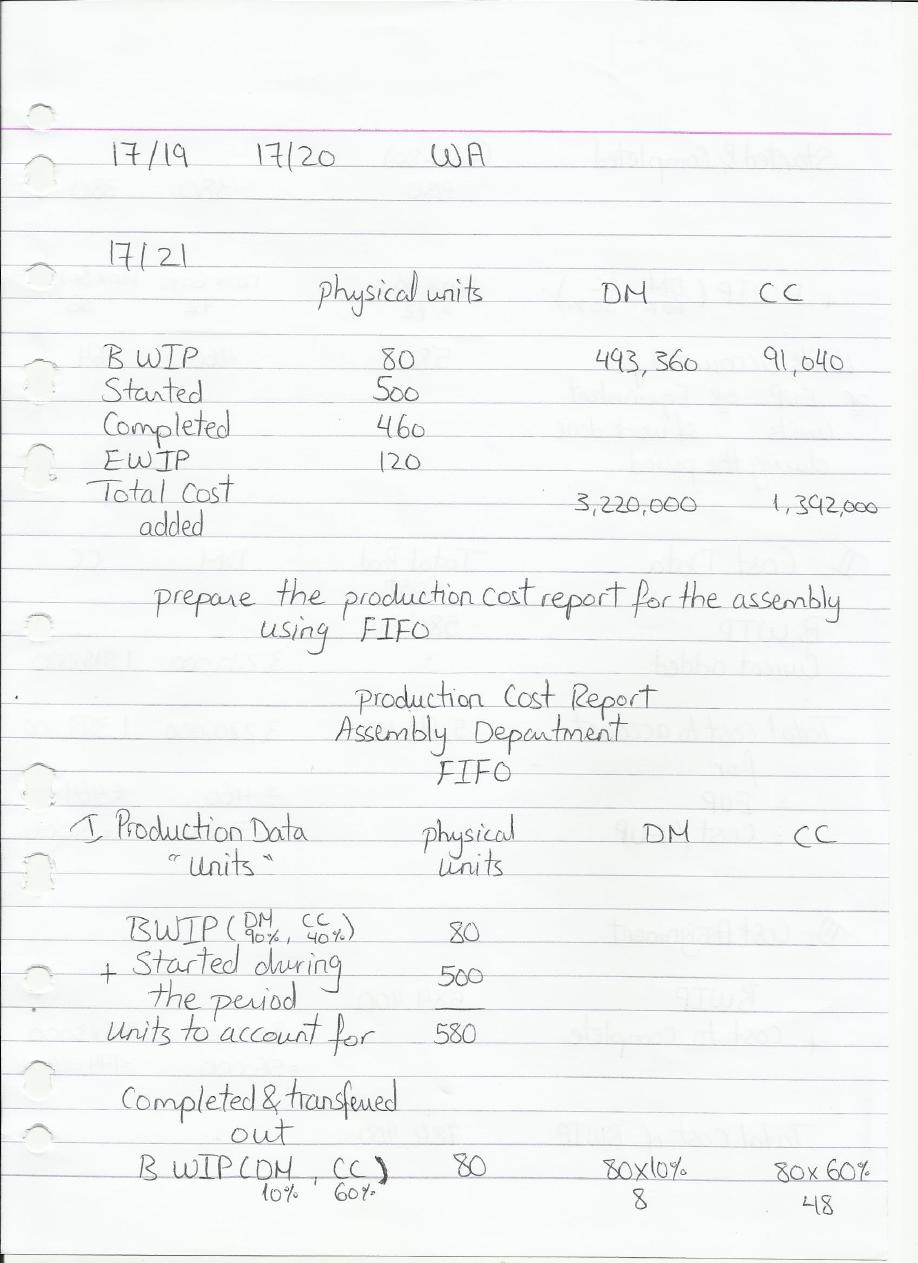 17/19 17/20 WA
17/21
physical units DM CC
B WIP 80 493,360 91,040
Started 500
Completed 460
EWIP 120
Total Cost
3,220,000 1,392,000
added
prepare the production cost report for the assembly
using FIFO
production Cost Report
Assembly Department
FIFO
I Production Data physical DM CC
"Units" units
BWIP (DM 90%, CC 40%) 80
+ Started during
500
the period
units to account for 580
Completed & transferred
out
B WIP (DM, CC) 80 80x10% 80x60%
10% 60% 8 48